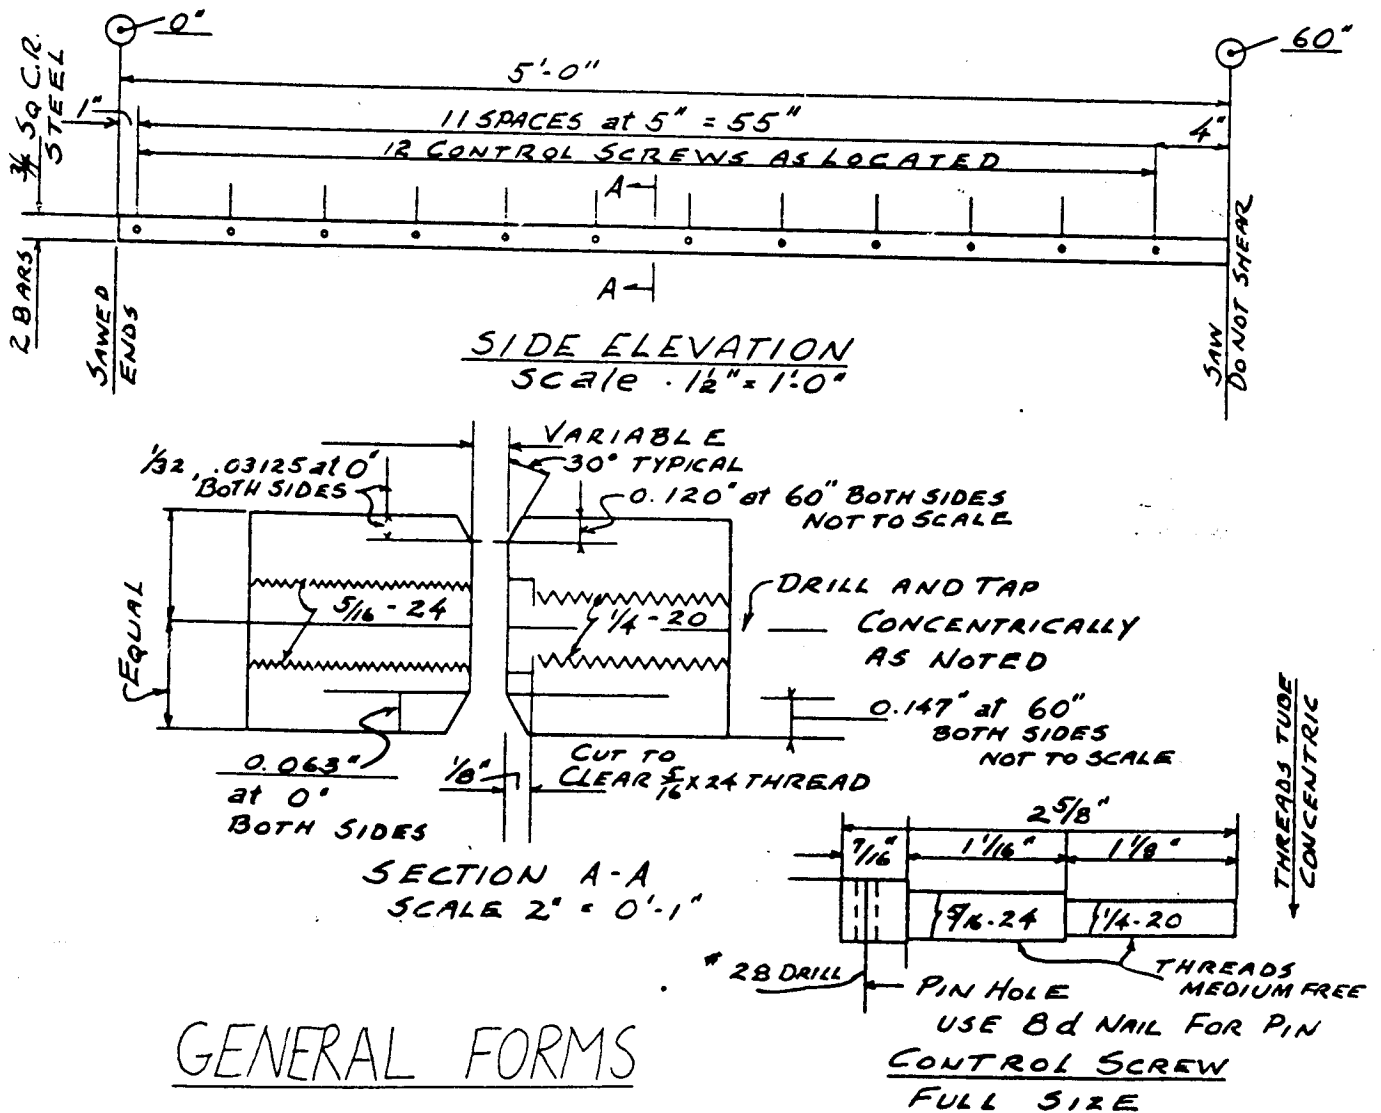 0"
60"
5'-0"
3/4 SQ C.R.
STEEL
1"
11 SPACES at 5" = 55"
4"
12 CONTROL SCREWS AS LOCATED
A
A
2 BARS
SAWED
ENDS
SAW
DO NOT SHEAR
SIDE ELEVATION
Scale · 1½" = 1'-0"
VARIABLE
30° TYPICAL
1/32, .03125 at 0"
BOTH SIDES
0.120" at 60" BOTH SIDES
NOT TO SCALE
EQUAL
5/16 - 24
1/4 - 20
DRILL AND TAP
CONCENTRICALLY
AS NOTED
0.147" at 60"
BOTH SIDES
NOT TO SCALE
0.063"
at 0"
BOTH SIDES
1/8"
CUT TO
CLEAR 5/16 x 24 THREAD
SECTION A-A
SCALE 2" = 0'-1"
THREADS TUBE
CONCENTRIC
2 5/8"
7/16"
1 1/16"
1 1/8"
5/16-24
1/4-20
# 28 DRILL
PIN HOLE
USE 8d NAIL FOR PIN
THREADS
MEDIUM FREE
CONTROL SCREW
FULL SIZE
GENERAL FORMS